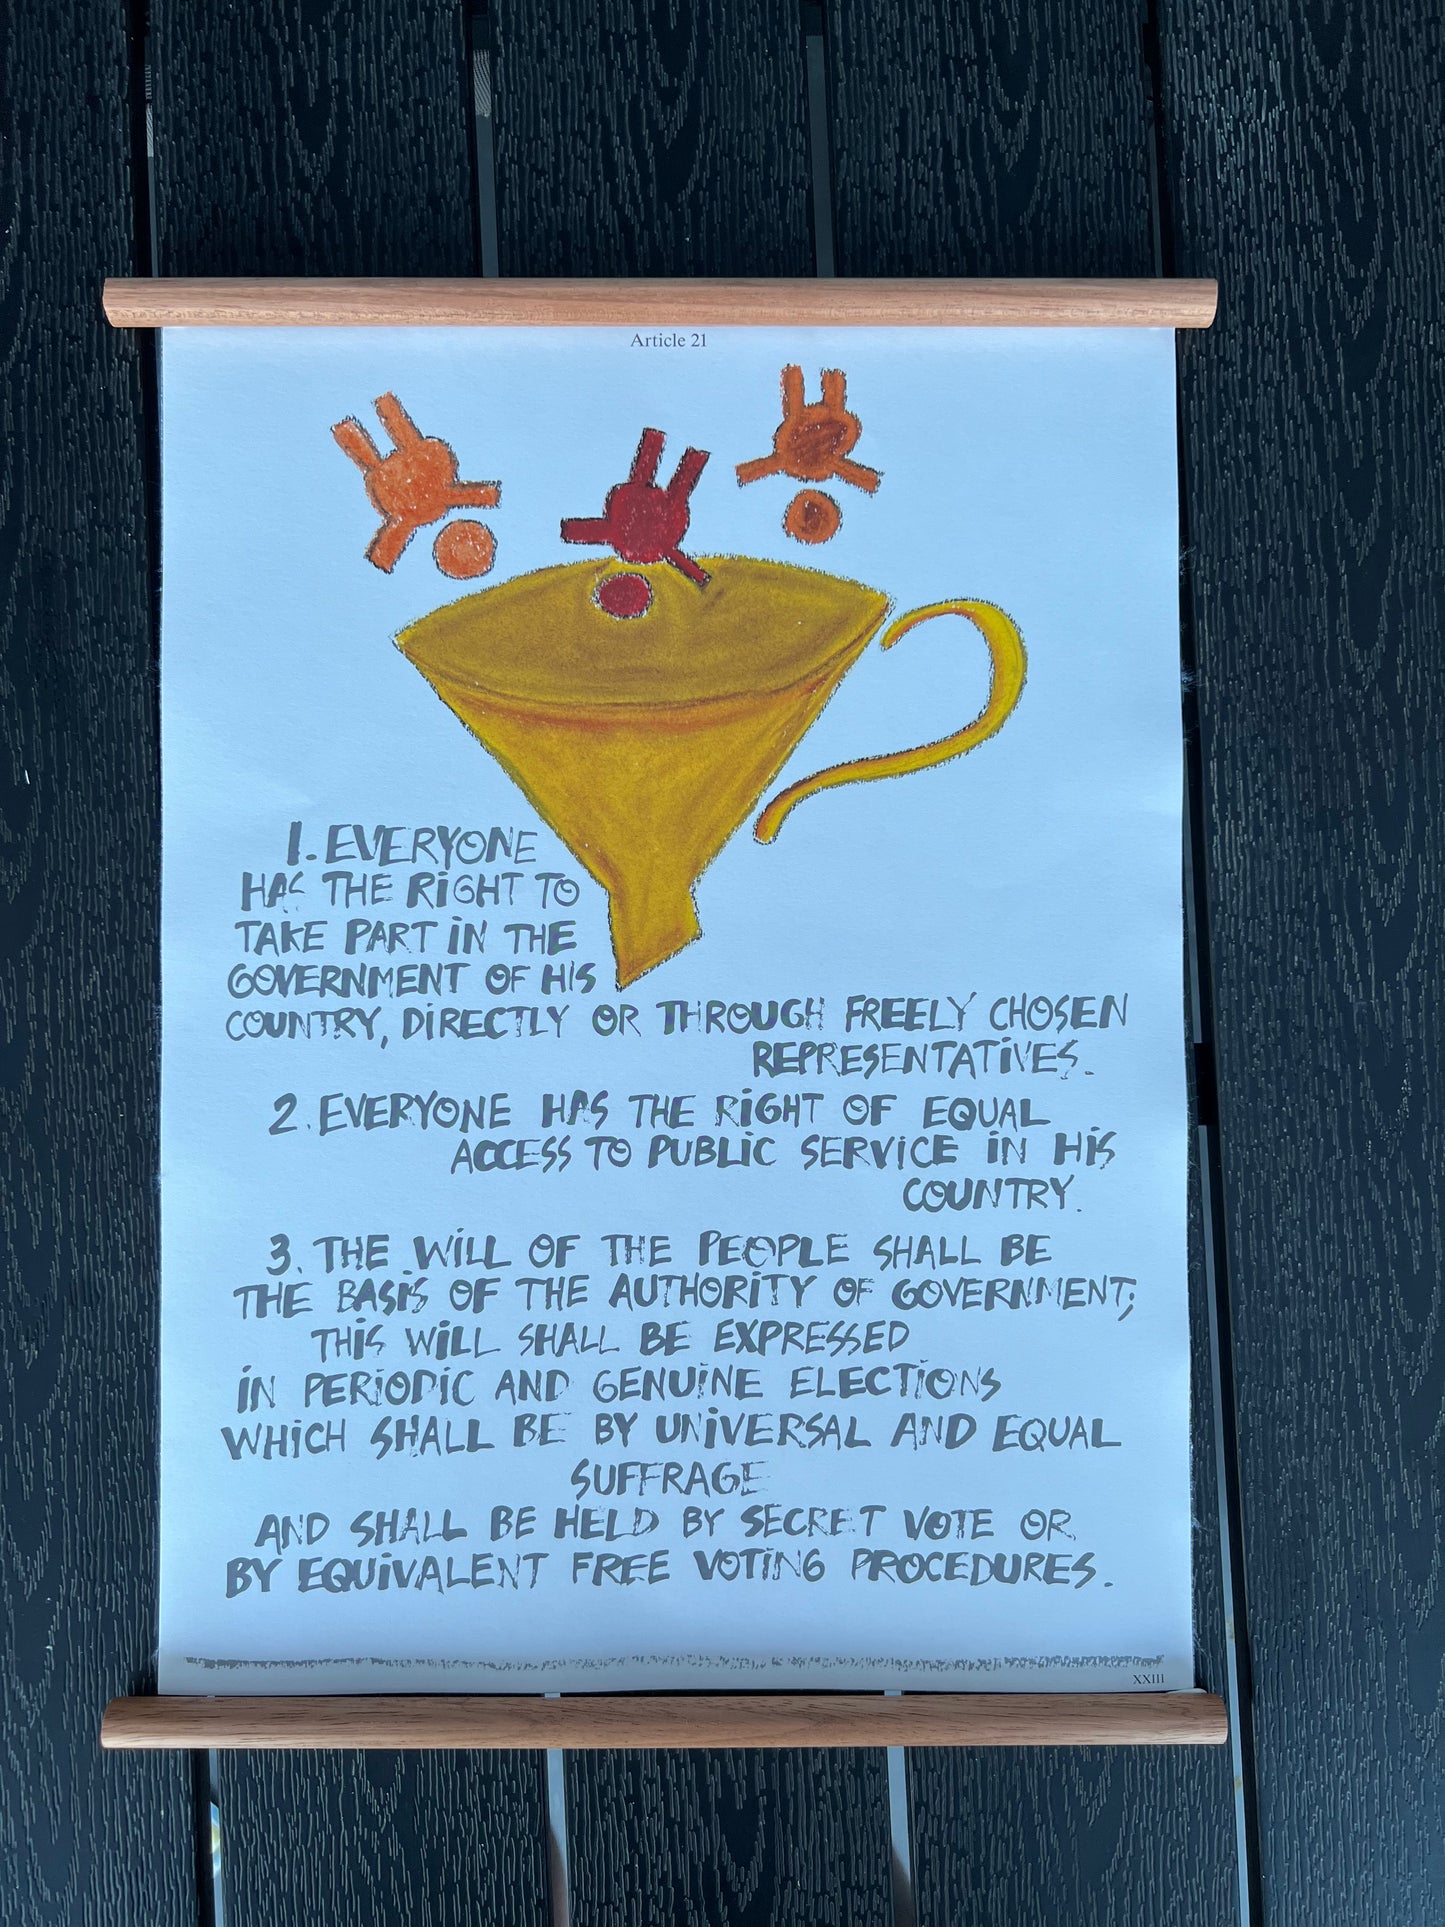 Article 21
1. EVERYONE
HAS THE RIGHT TO
TAKE PART IN THE
GOVERNMENT OF HIS
COUNTRY, DIRECTLY OR THROUGH FREELY CHOSEN
REPRESENTATIVES.
2. EVERYONE HAS THE RIGHT OF EQUAL
ACCESS TO PUBLIC SERVICE IN HIS
COUNTRY.
3. THE WILL OF THE PEOPLE SHALL BE
THE BASIS OF THE AUTHORITY OF GOVERNMENT;
THIS WILL SHALL BE EXPRESSED
IN PERIODIC AND GENUINE ELECTIONS
WHICH SHALL BE BY UNIVERSAL AND EQUAL
SUFFRAGE
AND SHALL BE HELD BY SECRET VOTE OR
BY EQUIVALENT FREE VOTING PROCEDURES.
XXIII